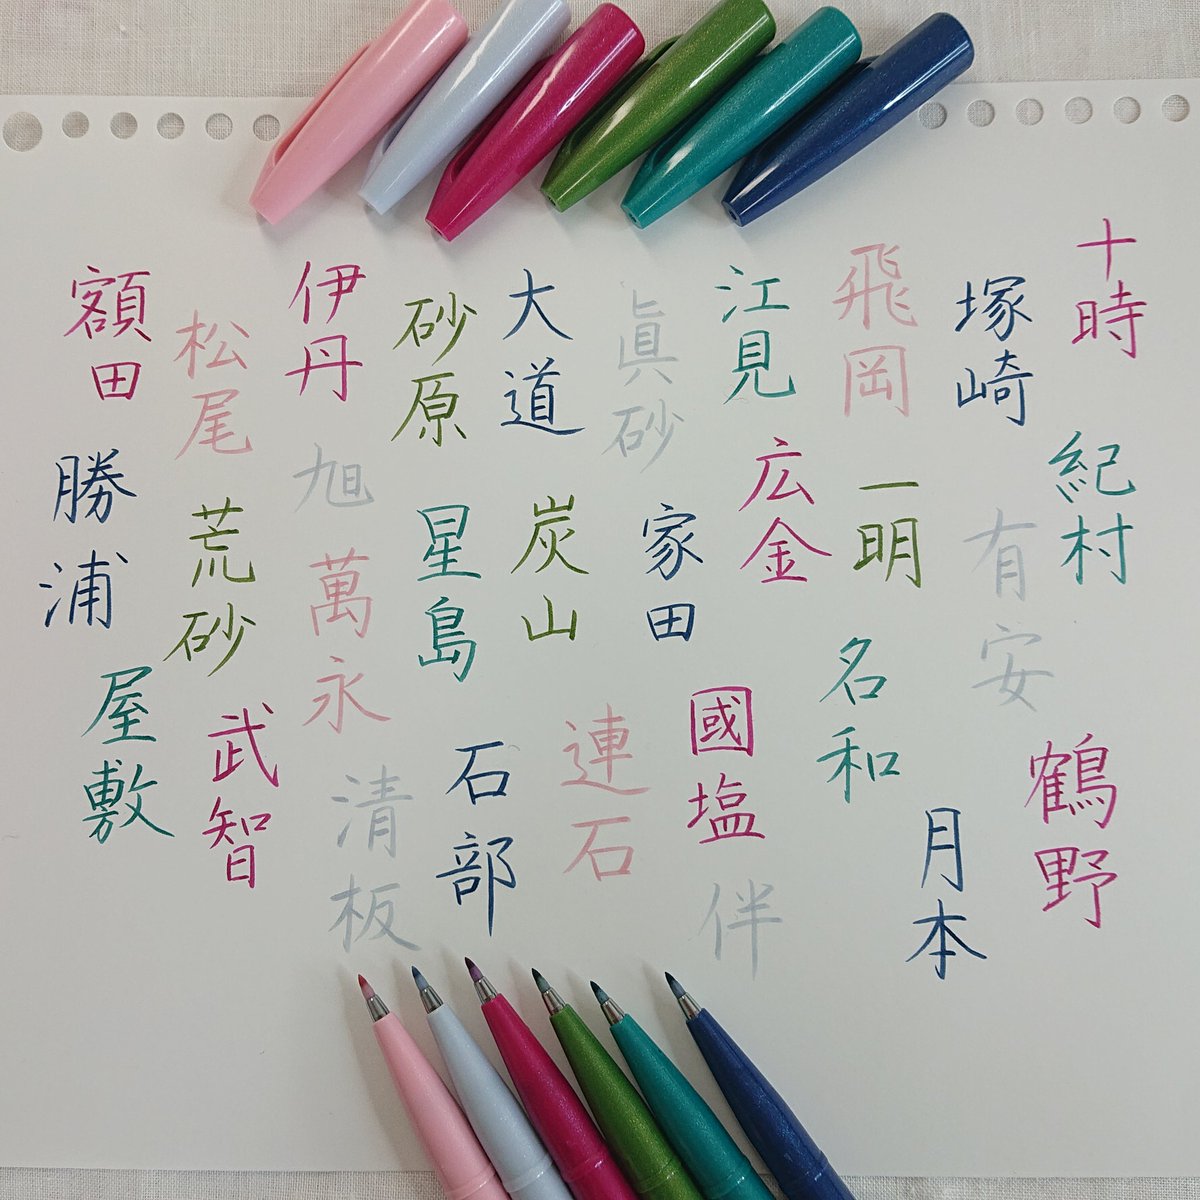 十時
紀村
鶴野
塚崎
有安
月本
飛岡
一明
名和
江見
広金
國塩
伴
眞砂
家田
連石
大道
炭山
石部
砂原
星島
清板
伊丹
旭
萬永
松尾
荒砂
武智
額田
勝浦
屋敷